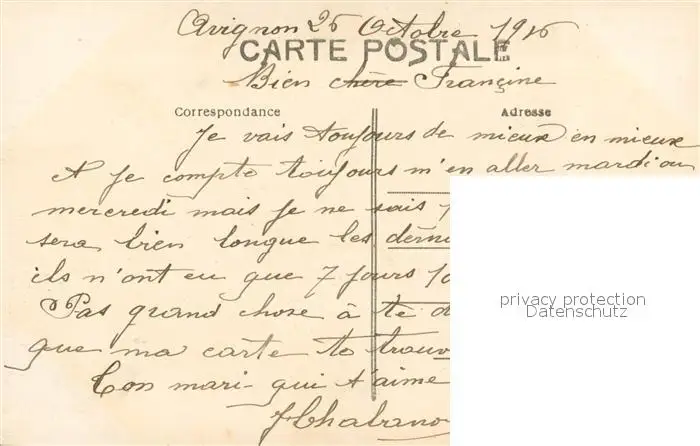 Avignon 26 Octobre 1916
CARTE POSTALE
Bien chère Françine
Correspondance
Adresse
Je vais toujours de mieux en mieux
et je compte toujours m'en aller mardi ou
mercredi mais je ne sais
sera bien longue les derni
ils n'ont eu que 7 jours
Pas grand chose à te d
que ma carte te trouv
Ton mari qui t'aime
privacy protection
Datenschutz